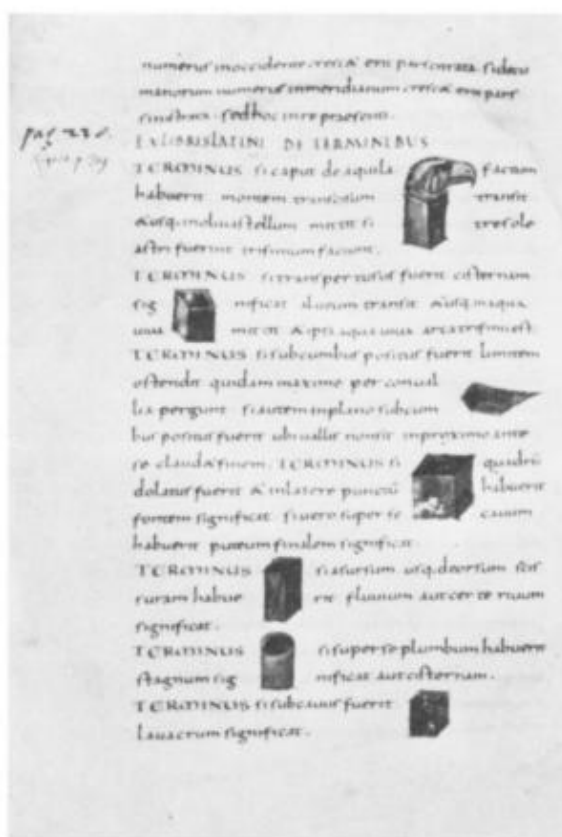 numerus inoccidente crescet erit pars
manorum numerus inmeridianum crescet erit pars
sinistra. sed hoc inre praesenti.
pag
EX LIBRIS LATINI DE TERMINIBUS
TERMINUS si caput de aquila factum
habuerit montem transit
&usq. mittit si tres ole
astri fuerint trifinium faciunt.
TERMINUS si transpertusus fuerit cisternam
significat rivum transit &usq. ad aqua
viva mittit &ipsa aqua viva arcatrifinii est.
TERMINUS si subcumbus positus fuerit limitem
ostendit quidam maxime per conval
lia pergunt si autem inplano subcum
bus positus fuerit ubi vallis non sit inproximo ante
se claudit finem. TERMINUS si quadru
dolatus fuerit & inlatere punctu habuerit
fontem significat si vero super se cavum
habuerit puteum finalem significat.
TERMINUS si asursum usq. deorsum scis
suram habuerit fluvium aut certe rivum
significat.
TERMINUS si super se plumbum habuerit
stagnum significat aut cisternam.
TERMINUS si subcavus fuerit
lavacrum significat.